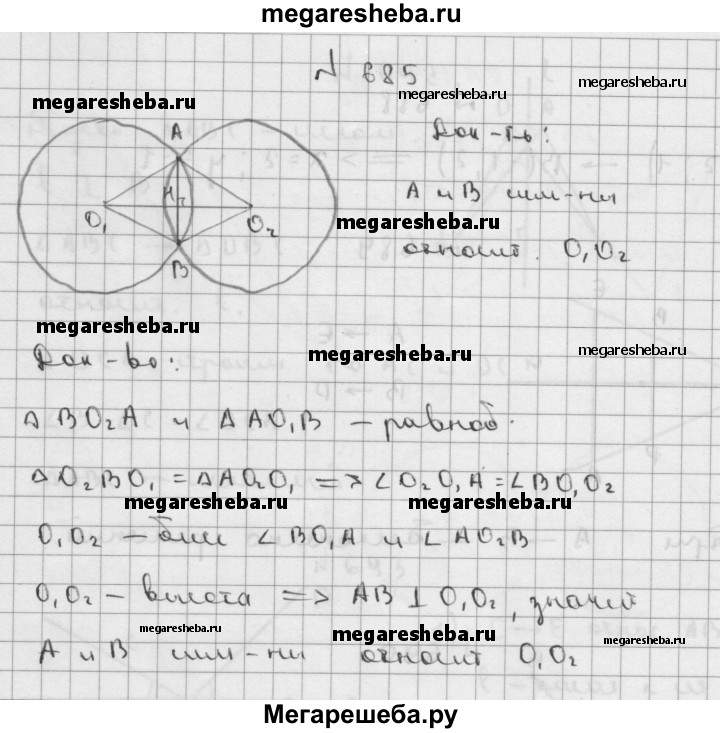 megaresheba.ru
№ 685
megaresheba.ru
megaresheba.ru
megaresheba.ru
A
H
O₁
O₂
B
Док-ть:
A и B сим-ны
megaresheba.ru
относит. O₁O₂
megaresheba.ru
megaresheba.ru
megaresheba.ru
Док-во:
△ BO₂A и △ AO₁B – равноб.
△ O₂BO₁ = △AO₂O₁ => ∠O₂O₁A = ∠BO₁O₂
megaresheba.ru
megaresheba.ru
O₁O₂ – бис ∠BO₁A и ∠AO₂B
O₁O₂ – высота => AB ⊥ O₁O₂, значит
megaresheba.ru
megaresheba.ru
megaresheba.ru
A и B сим-ны относит O₁O₂
Мегарешеба.ру